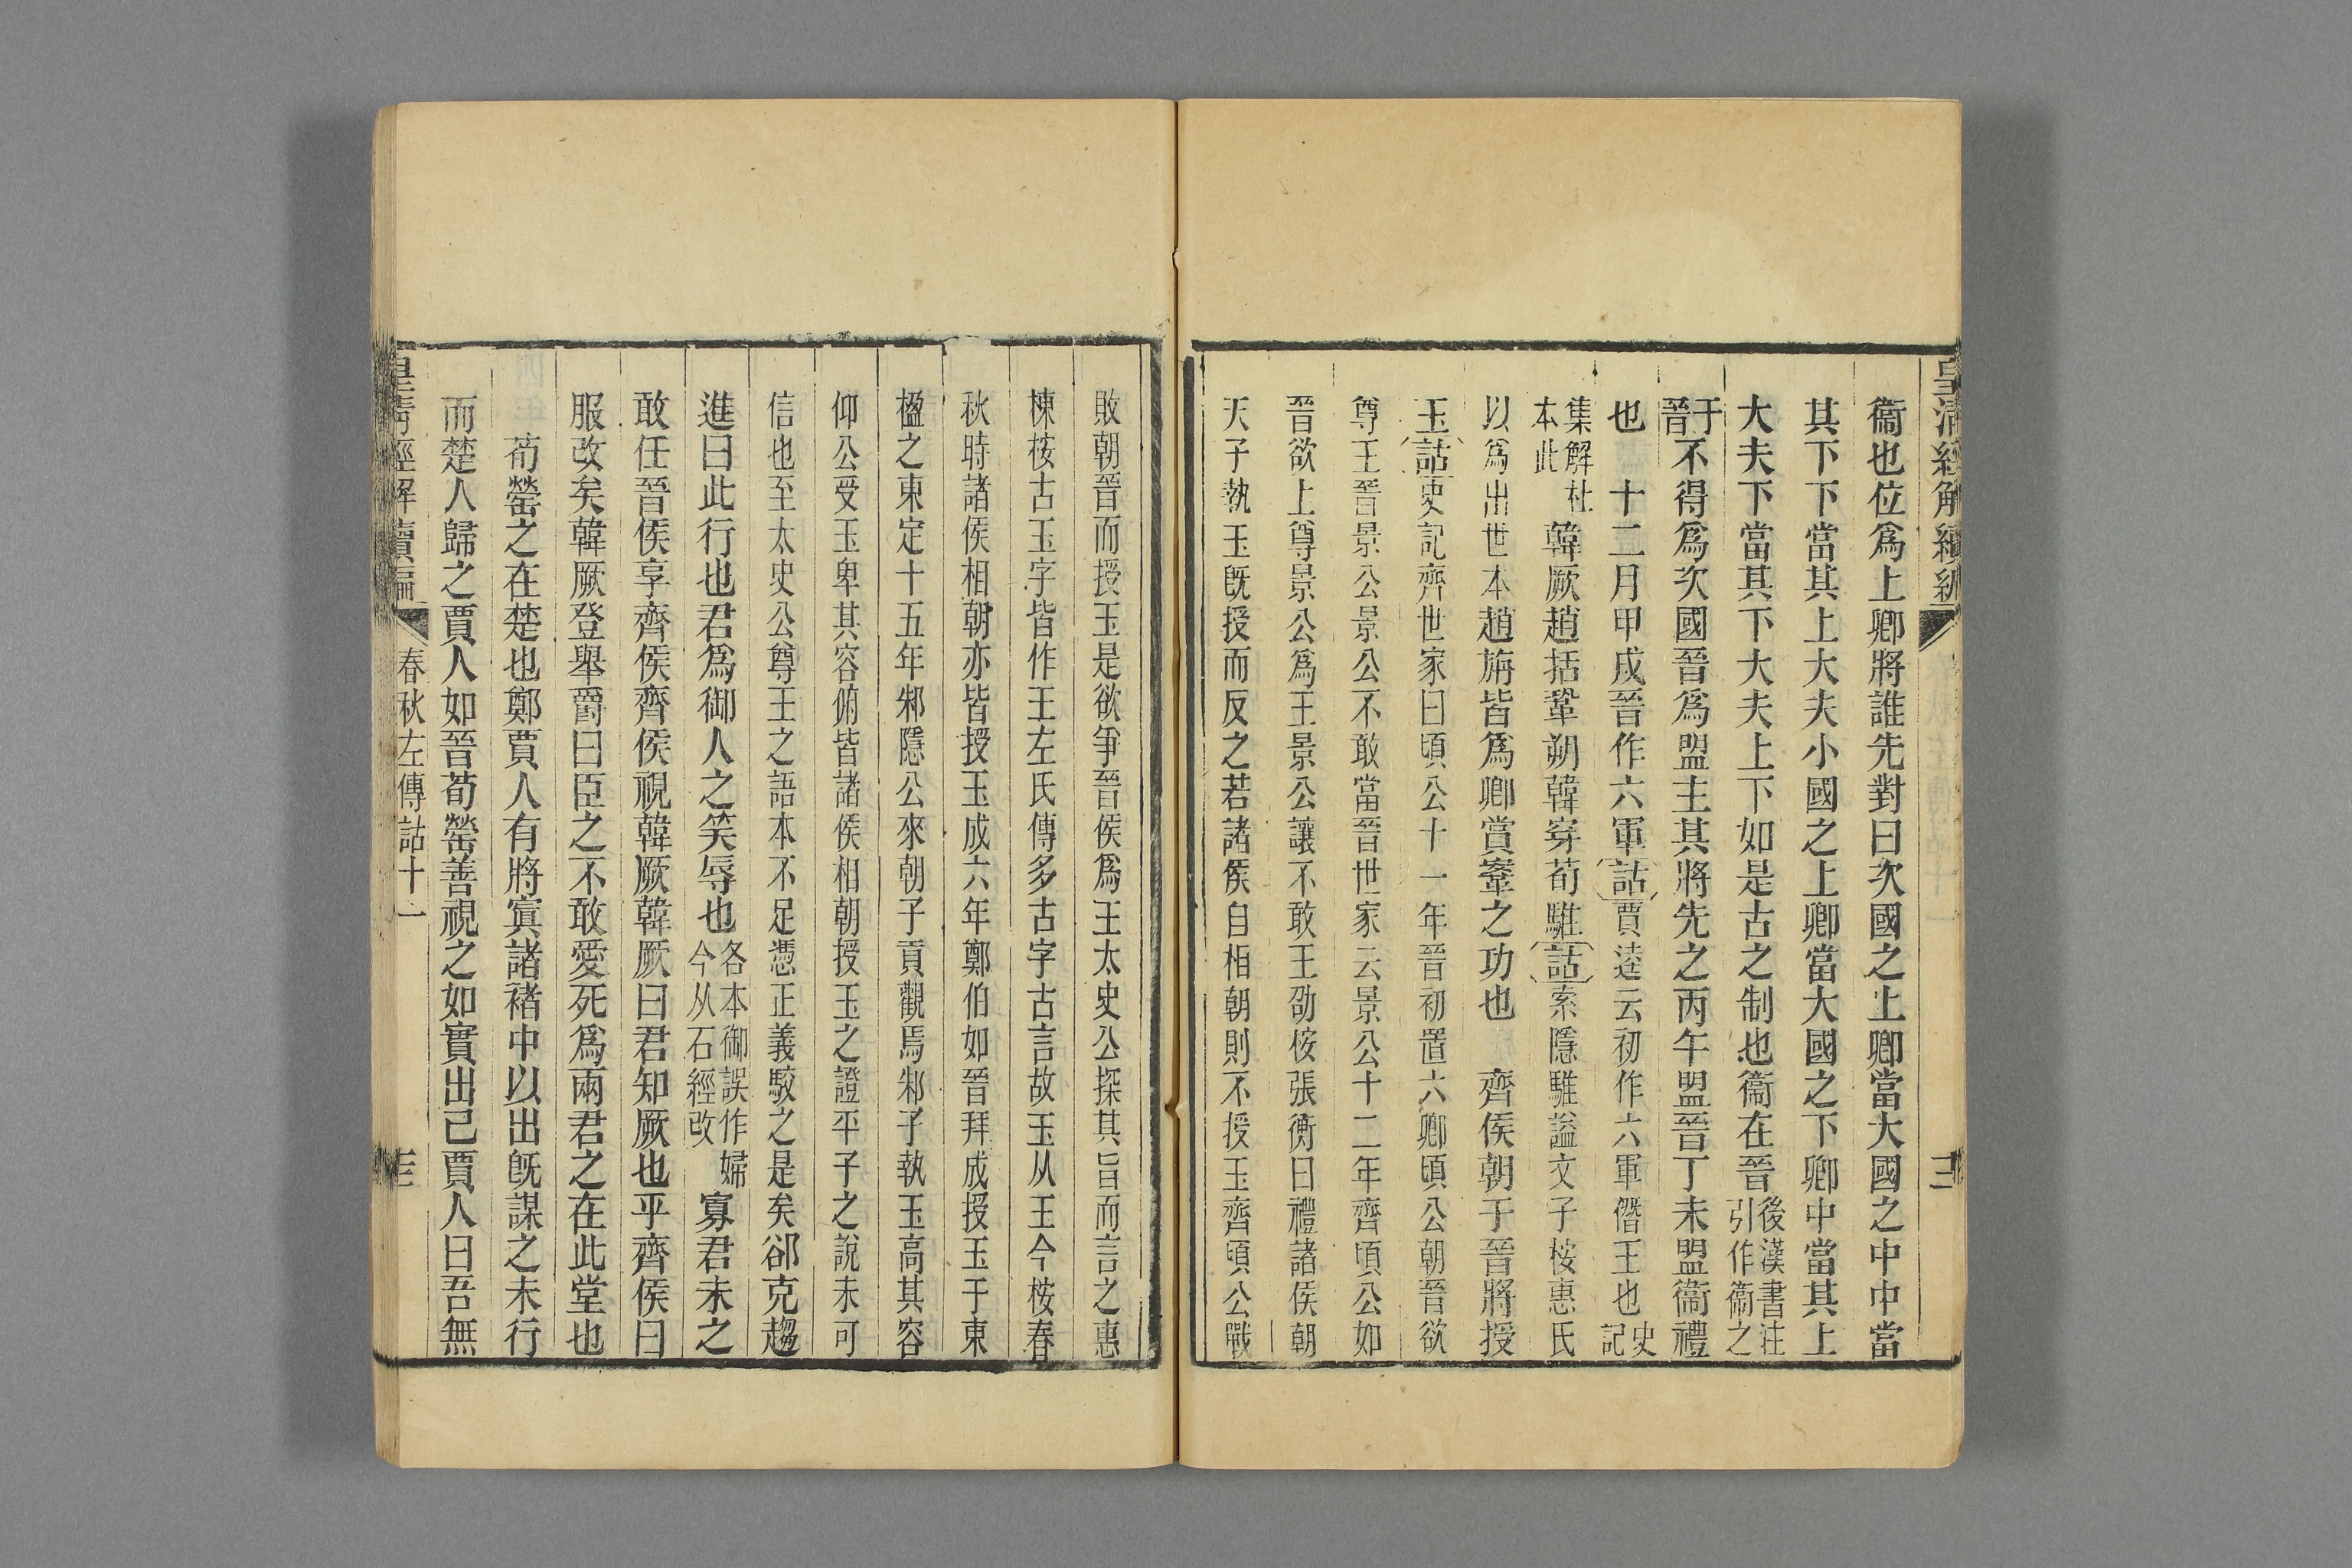 皇清經解續編
三
衞也位爲上卿將誰先對曰次國之上卿當大國之中中當
其下下當其上大夫小國之上卿當大國之下卿中當其上
大夫下當其下大夫上下如是古之制也衞在晉後漢書注引作衞之
于晉不得爲次國晉爲盟主其將先之丙午盟晉丁未盟衞禮
也　十二月甲戌晉作六軍詁賈逵云初作六軍僭王也史記
集解杜本此　韓厥趙括鞏朔韓穿荀騅詁索隱騅謚文子桉惠氏
以爲出世本趙旃皆爲卿賞鞌之功也　齊侯朝于晉將授
玉詁史記齊世家曰頃公十一年晉初置六卿頃公朝晉欲
尊王晉景公景公不敢當晉世家云景公十二年齊頃公如
晉欲上尊景公爲王景公讓不敢王劭桉張衡曰禮諸侯朝
天子執玉旣授而反之若諸侯自相朝則不授玉齊頃公戰
敗朝晉而授玉是欲爭晉侯爲王太史公探其旨而言之惠
棟桉古玉字皆作王左氏傳多古字古言故玉从王今桉春
秋時諸侯相朝亦皆授玉成六年鄭伯如晉拜成授玉于東
楹之東定十五年邾隱公來朝子貢觀焉邾子執玉高其容
仰公受玉卑其容俯皆諸侯相朝授玉之證平子之說未可
信也至太史公尊王之語本不足憑正義駮之是矣郤克趨
進曰此行也君爲御人之笑辱也各本御誤作婦今从石經改　寡君未之
敢任晉侯享齊侯齊侯視韓厥韓厥曰君知厥也乎齊侯曰
服改矣韓厥登舉爵曰臣之不敢愛死爲兩君之在此堂也
荀罃之在楚也鄭賈人有將寘諸褚中以出旣謀之未行
而楚人歸之賈人如晉荀罃善視之如實出己賈人曰吾無
皇清經解續編
春秋左傳詁十一